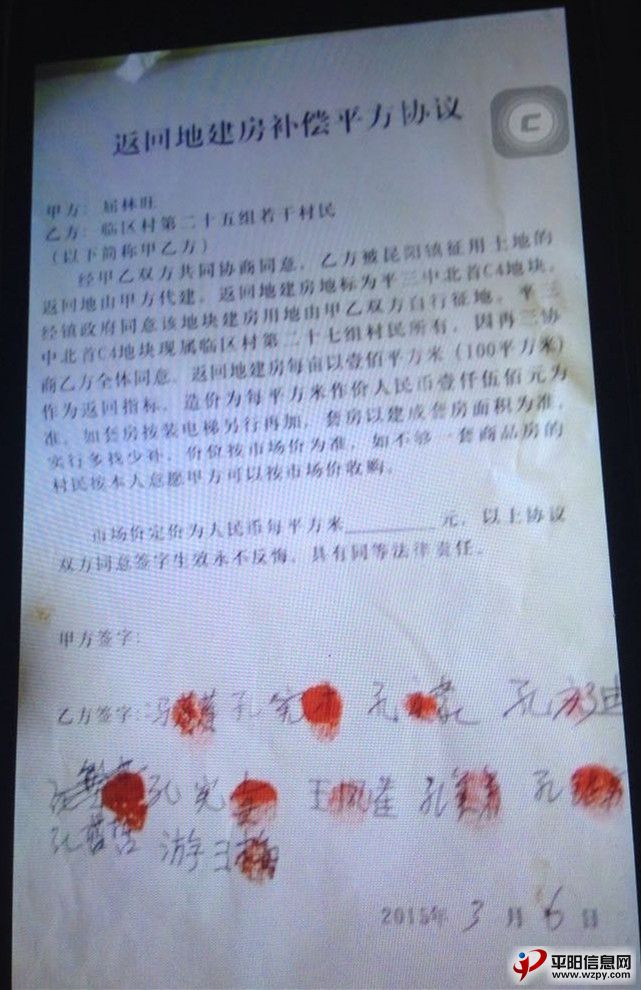 返回地建房补偿平方协议
甲方：屈林旺
乙方：临区村第二十五组若干村民
（以下简称甲乙方）
经甲乙双方共同协商同意，乙方被昆阳镇征用土地的
返回地由甲方代建，返回地建房地标为平三中北首C4地块，
经镇政府同意该地块建房用地由甲乙双方自行征地。平三
中北首C4地块现属临区村第二十七组村民所有，因再三协
商乙方全体同意，返回地建房每亩以壹佰平方米（100平方米）
作为返回指标，造价为每平方米作价人民币壹仟伍佰元为
准，如套房按装电梯另行再加，套房以建成套房面积为准，
实行多找少补，价位按市场价为准，如不够一套商品房的
村民按本人意愿甲方可以按市场价收购。
市场价定价为人民币每平方米________元，以上协议
双方同意签字生效永不反悔，具有同等法律责任。
甲方签字：
乙方签字：冯 孔宪 孔 孔
孔宪 王凤 孔 孔
孔 游
2015年3月6日
C
平阳信息网
www.wzpy.com